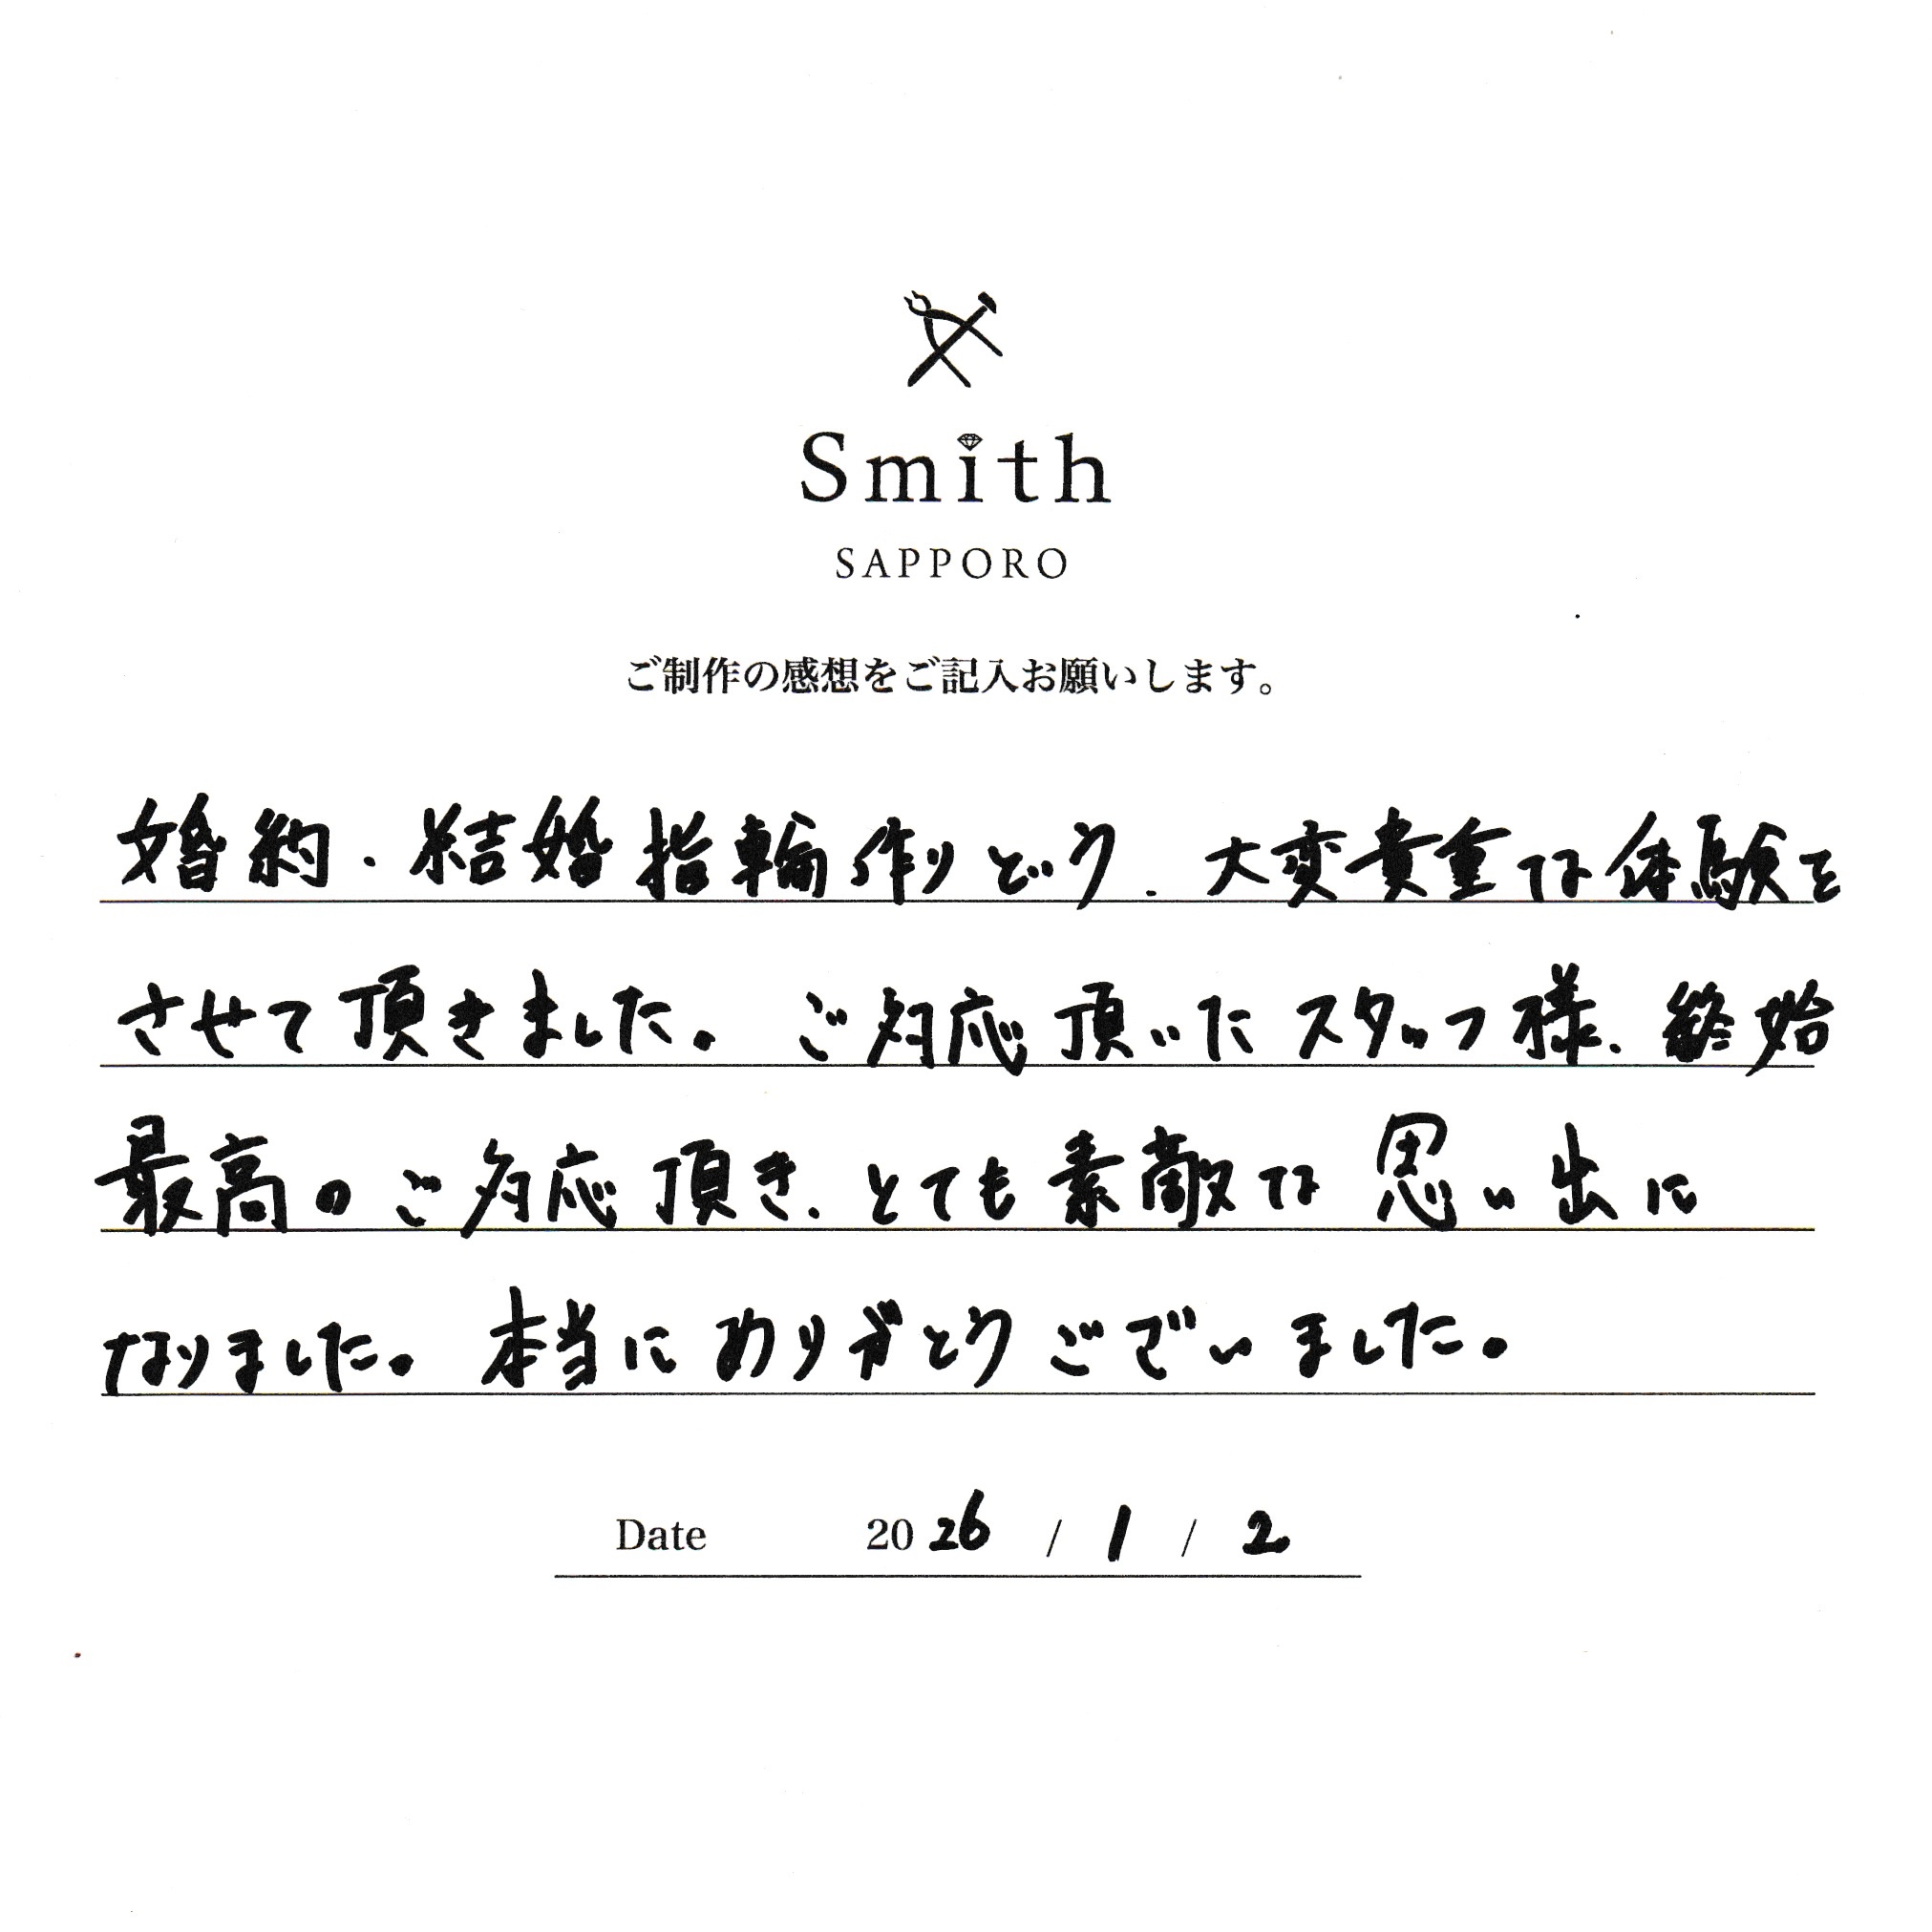 Smith
SAPPORO
ご制作の感想をご記入お願いします。
婚約・結婚指輪作りどり、大変貴重な体験を
させて頂きました。ご対応頂いたスタッフ様、終始
最高のご対応頂き、とても素敵な思い出に
なりました。本当にありがとうございました。
Date 2026 / 1 / 2